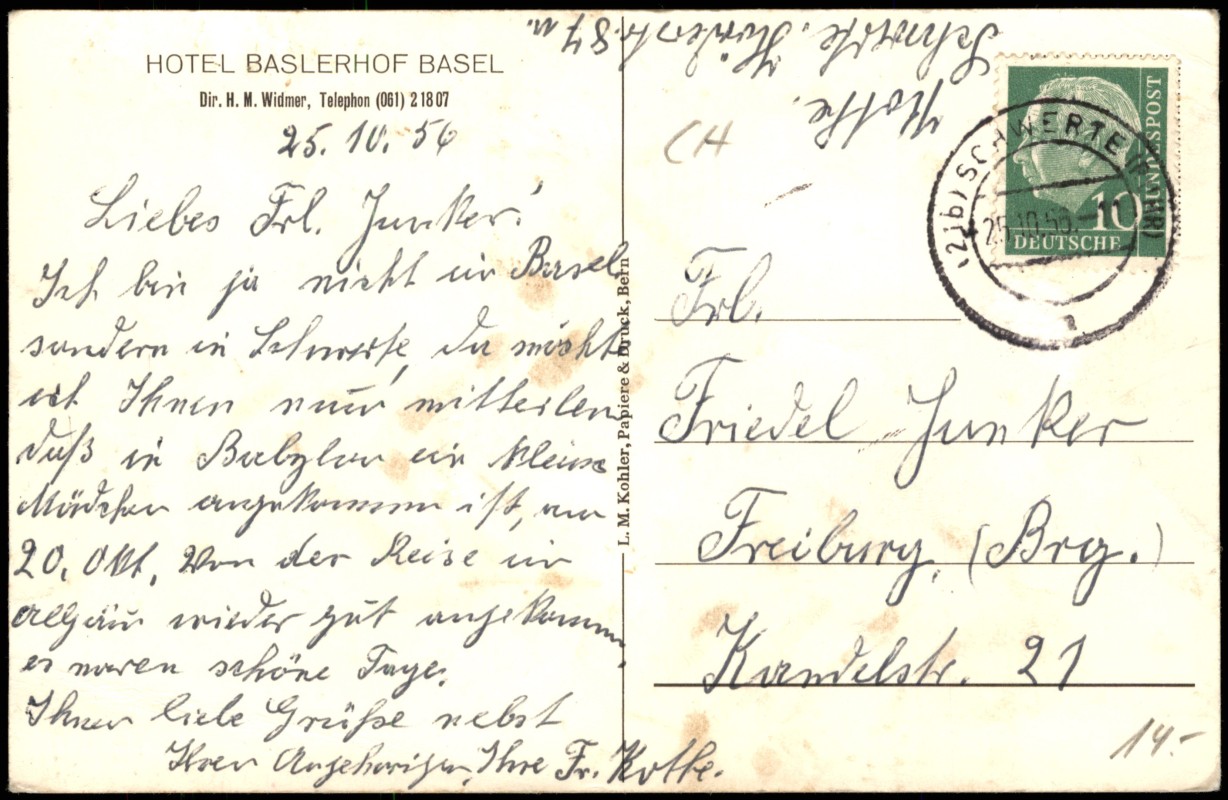 HOTEL BASLERHOF BASEL
Dir. H. M. Widmer, Telephon (061) 2 18 07
25. 10. 56
Liebes Frl. Junker!
Ich bin ja nicht in Basel
sondern in Schwerte, da möchte
ich Ihnen nur mitteilen
daß in Babylon ein kleines
Mädchen angekommen ist, am
20. Okt. Von der Reise im
Allgäu wieder gut angekommen,
es waren schöne Tage.
Ihnen liebe Grüße nebst
Ihren Angehörigen, Ihre Fr. Kothe.
L. M. Kohler, Papiere & Druck, Bern
Kothe.
Schwerte. 87
CH
(21b) SCHWERTE (RUHR)
25.10.56.-11
a
10
DEUTSCHE
BUNDESPOST
Frl.
Friedel Junker
Freiburg, (Brg.)
Kandelstr. 21
14.-